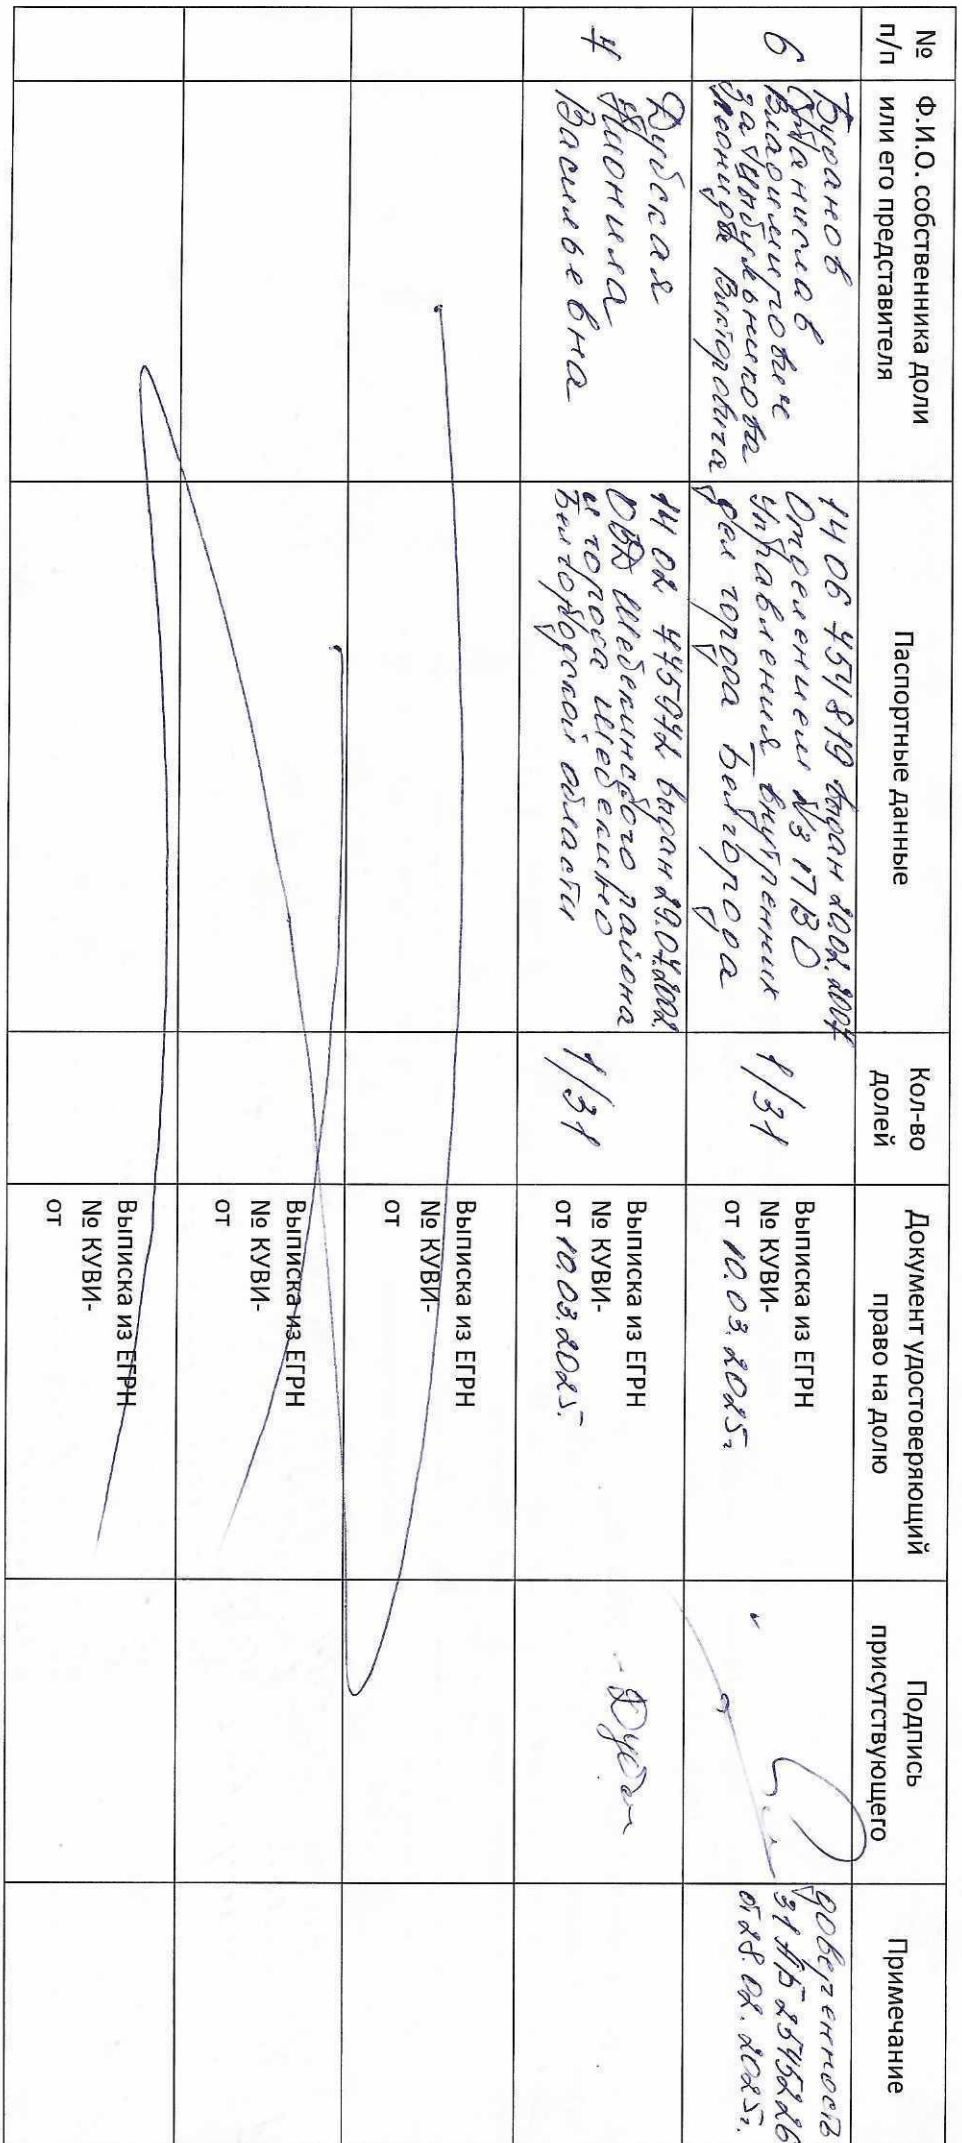 № п/п
Ф.И.О. собственника доли
или его представителя
Паспортные данные
Кол-во
долей
Документ удостоверяющий
право на долю
Подпись
присутствующего
Примечание
6
Буданов
Станислав
Владимирович
за
Леонида Викторовича
14 06 754819 выдан 20.02.2007
Отделением №3 ПВО
Управления внутренних
дел города Белгорода
1/31
Выписка из ЕГРН
№ КУВИ-
от 10.03.2025г
доверенность
31 АБ 2545226
от 28.02.2025г.
7
Дубская
Неонила
Васильевна
14 02 выдан 29.07.2002
ОВД Шебекинского района
и города Шебекино
Белгородской области
1/31
Выписка из ЕГРН
№ КУВИ-
от 10.03.2025.
Выписка из ЕГРН
№ КУВИ-
от
Выписка из ЕГРН
№ КУВИ-
от
Выписка из ЕГРН
№ КУВИ-
от